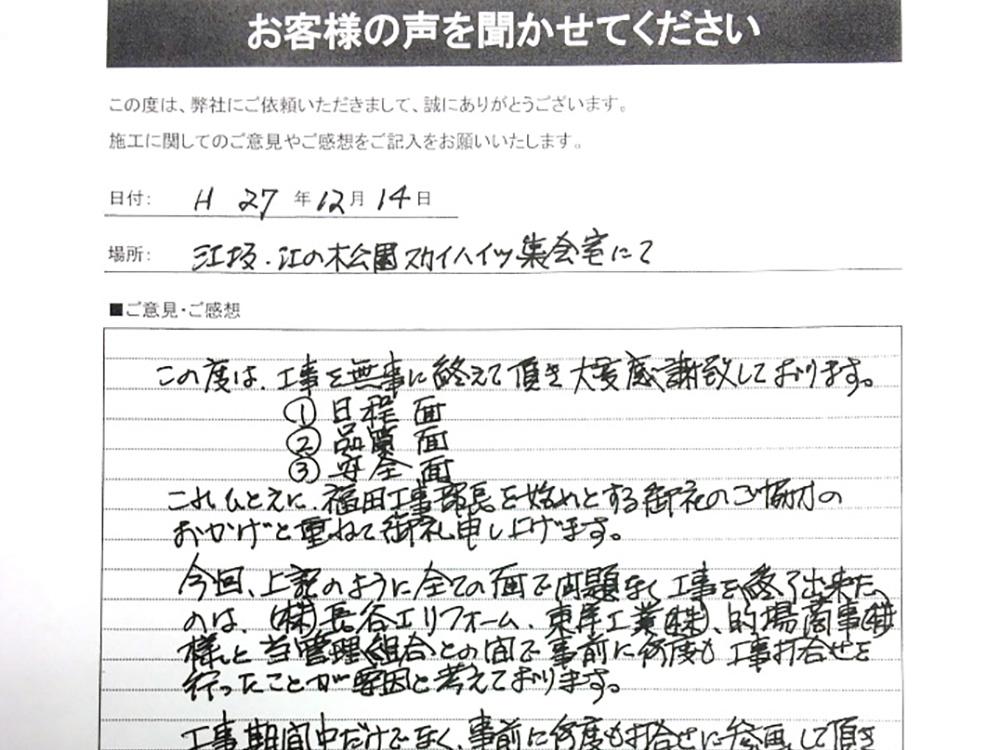 お客様の声を聞かせてください
この度は、弊社にご依頼いただきまして、誠にありがとうございます。
施工に関してのご意見やご感想をご記入をお願いいたします。
日付: H 27 年 12 月 14 日
場所: 江坂・江の木公園スカイハイツ集会室にて
■ご意見・ご感想
この度は、工事を無事に終えて頂き大変感謝致しております。
① 日程 面
② 品質 面
③ 安全 面
これひとえに、福田工事部長を始めとする御社のご協力の
おかげと重ねて御礼申し上げます。
今回、上記のように全ての面で問題なく工事を終了出来た
のは、(株)長谷工リフォーム、東洋工業(株)、的場商事(株)
様と当管理組合との間で事前に何度も工事打合せを
行ったことが要因と考えております。
工事期間中だけでなく、事前に何度も打合せに参画して頂き